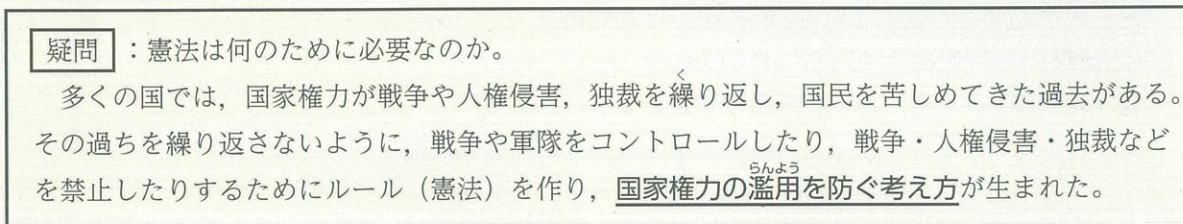 疑問：憲法は何のために必要なのか。
多くの国では，国家権力が戦争や人権侵害，独裁を繰り返し，国民を苦しめてきた過去がある。
その過ちを繰り返さないように，戦争や軍隊をコントロールしたり，戦争・人権侵害・独裁など
を禁止したりするためにルール（憲法）を作り，国家権力の濫用を防ぐ考え方が生まれた。